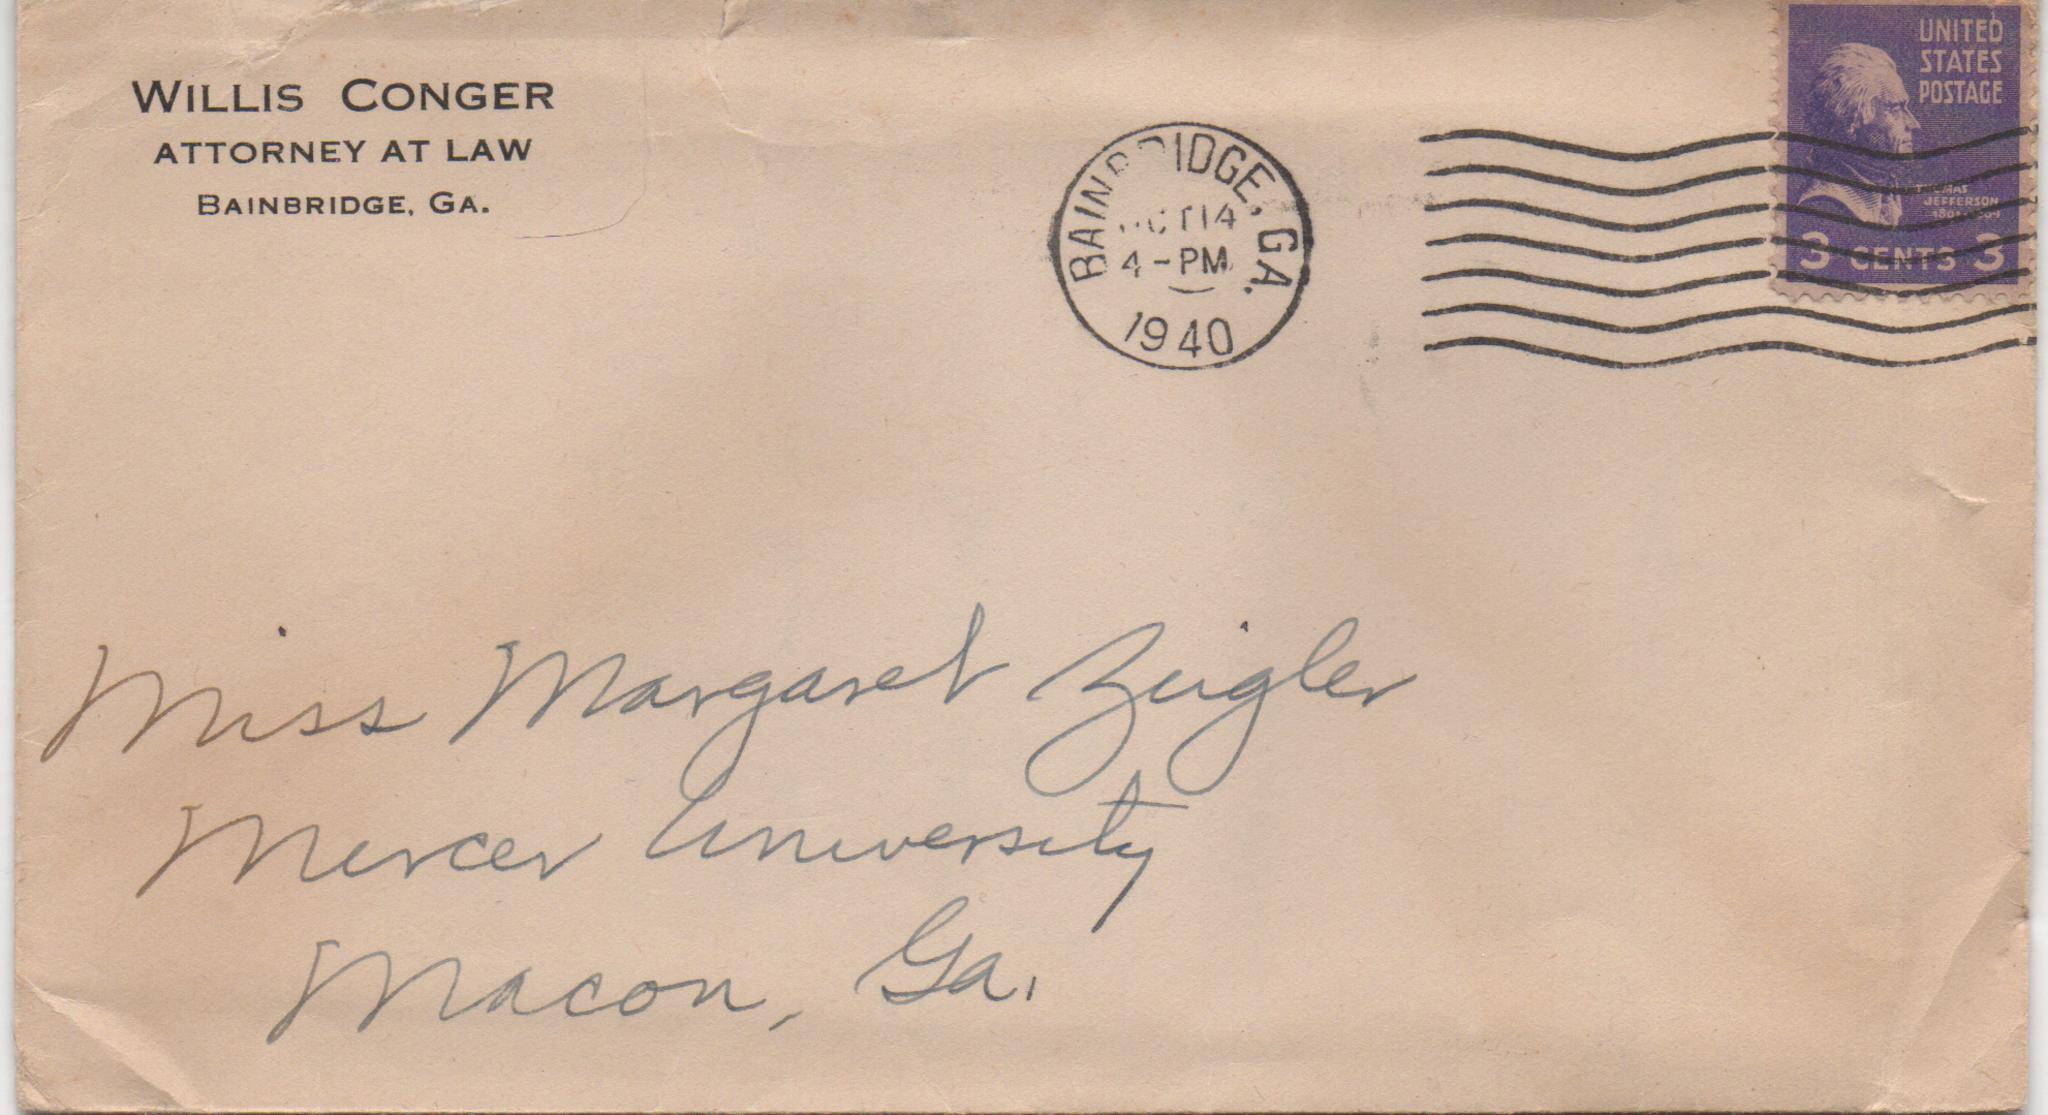 WILLIS CONGER
ATTORNEY AT LAW
BAINBRIDGE, GA.
BAINBRIDGE, GA.
OCT 14
4-PM
1940
UNITED
STATES
POSTAGE
THOMAS
JEFFERSON
1801-1809
3 CENTS 3
Miss Margaret Zeigler
Mercer University
Macon, Ga.